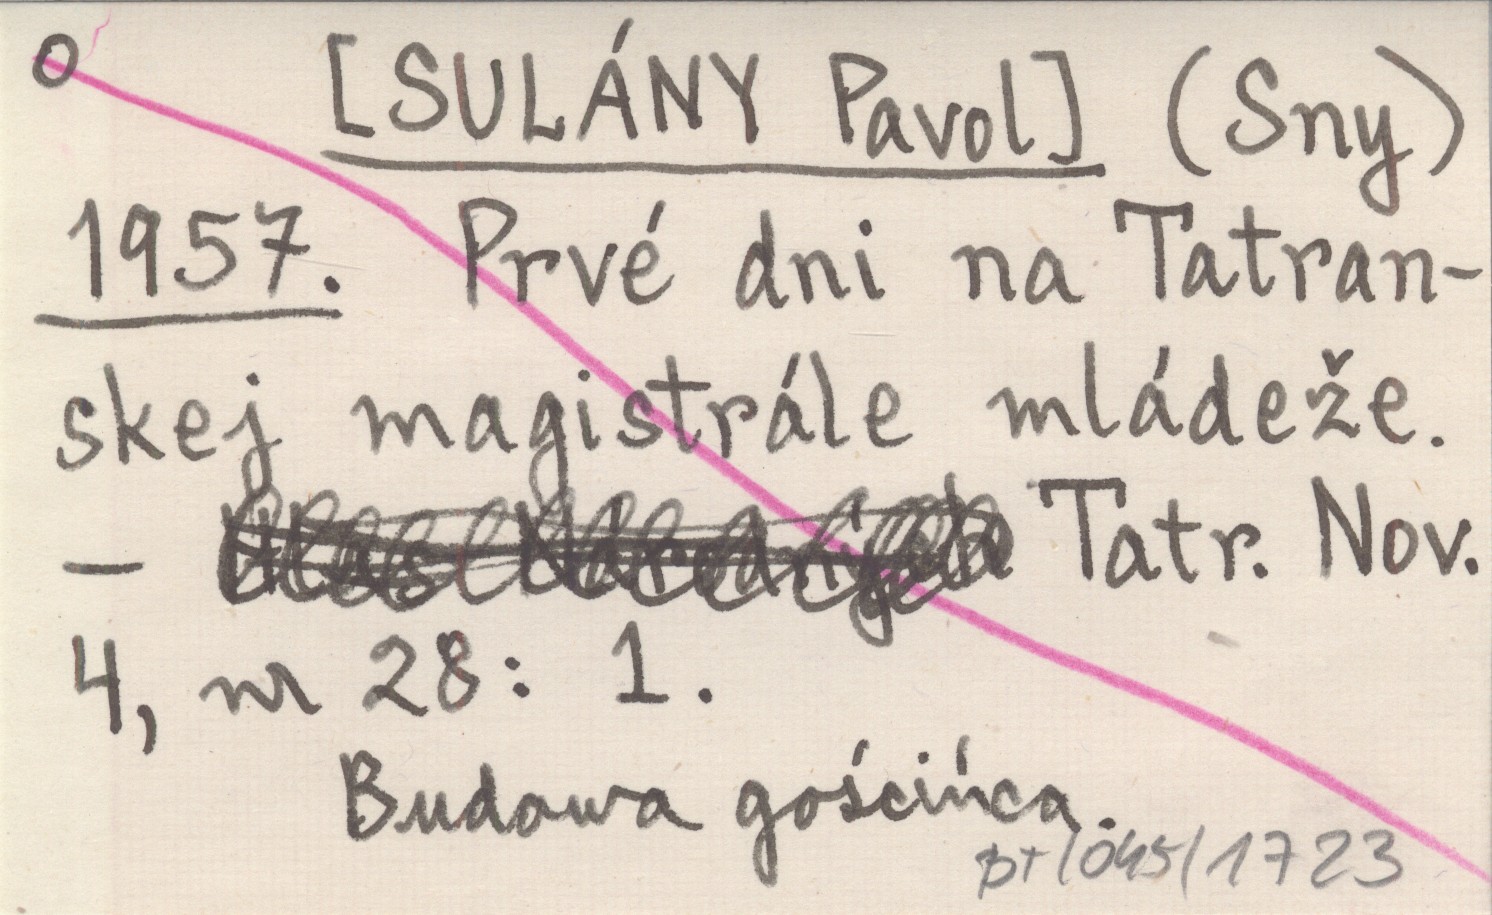 o [SULÁNY Pavol] (Sny)
1957. Prvé dni na Tatran-
skej magistrále mládeže.
— Tatr. Nov.
4, nr 28: 1.
Budowa gościńca.
pt/045/1723